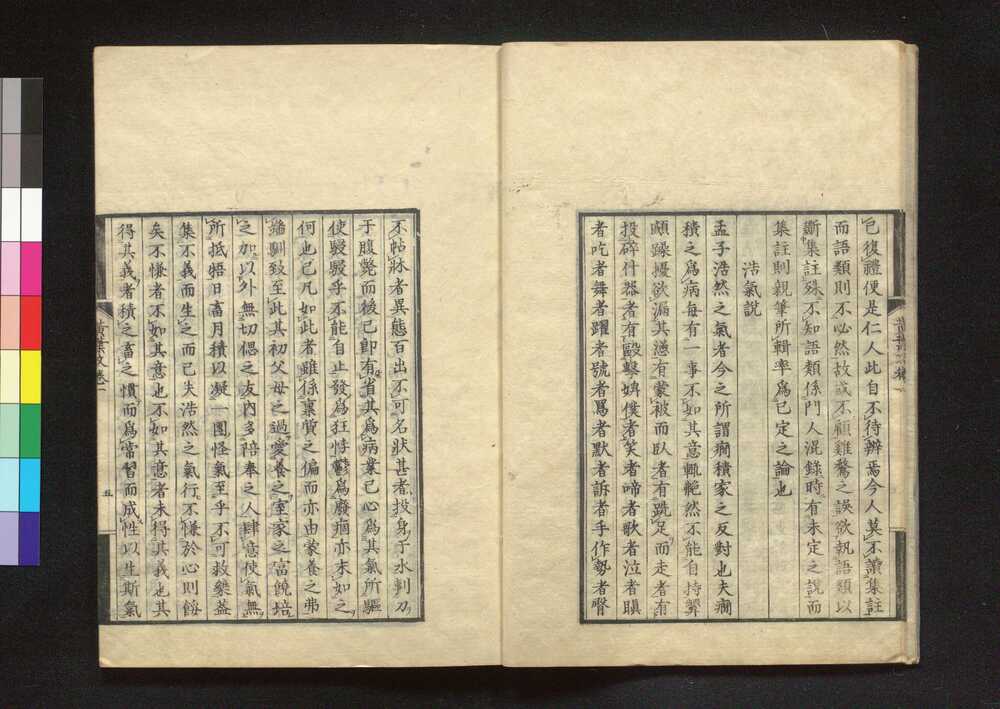 己復禮便是仁人此自不待辨焉今人莫不讀集註
而語類則不必然故或不顧雞鶩之誤欲執語類以
斷集註殊不知語類係門人混錄時有未定之說而
集註則親筆所輯率為已定之論也
浩氣說
孟子浩然之氣者今之所謂癇積家之反對也夫癇
積之為病每有一事不如其意輒艴然不能自持顰
頤躁擾欲漏其懣有蒙被而臥者有跣足而走者有
投碎什器者有毆擊婢僕者笑者啼者歌者泣者瞋
者吃者舞者躍者號者罵者默者訴者手作勢者脣
不帖牀者異態百出不可名狀甚者投身于水剚刀
于腹斃而後已即有省其為病業已心為其氣所驅
使駸駸乎不能自止發為狂悖鬱為廢痼亦末如之
何也已凡如此者雖係稟質之偏而亦由蒙養之弗
端馴致至此其初父母之過愛養之室家之富饒培
之加以外無切偲之友內多穧奉之人肆意使氣無
所抵牾日畜月積以凝一團怪氣至乎不可救藥蓋
集不義而生之而已夫浩然之氣行不慊於心則餒
矣不慊者不如其意也不如其意者未得其義也其
得其義者積之畜之慣而為常習而成性以生斯氣
黃葉
黃葉
卷一
五